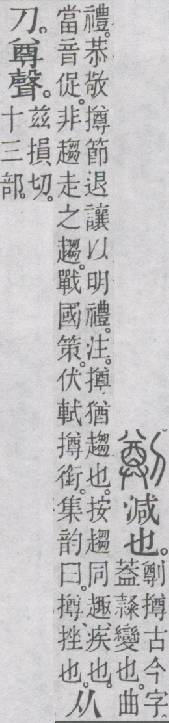 㔌减也。㔌撙古今字。蓋隸變也。曲
禮。恭敬撙節退讓以明禮。注。撙猶趨也。按趨同趣。疾也。
當音促。非趨走之趨。戰國策。伏軾撙銜。集韵曰。撙挫也。从
刀。尊聲。茲損切。
十三部。